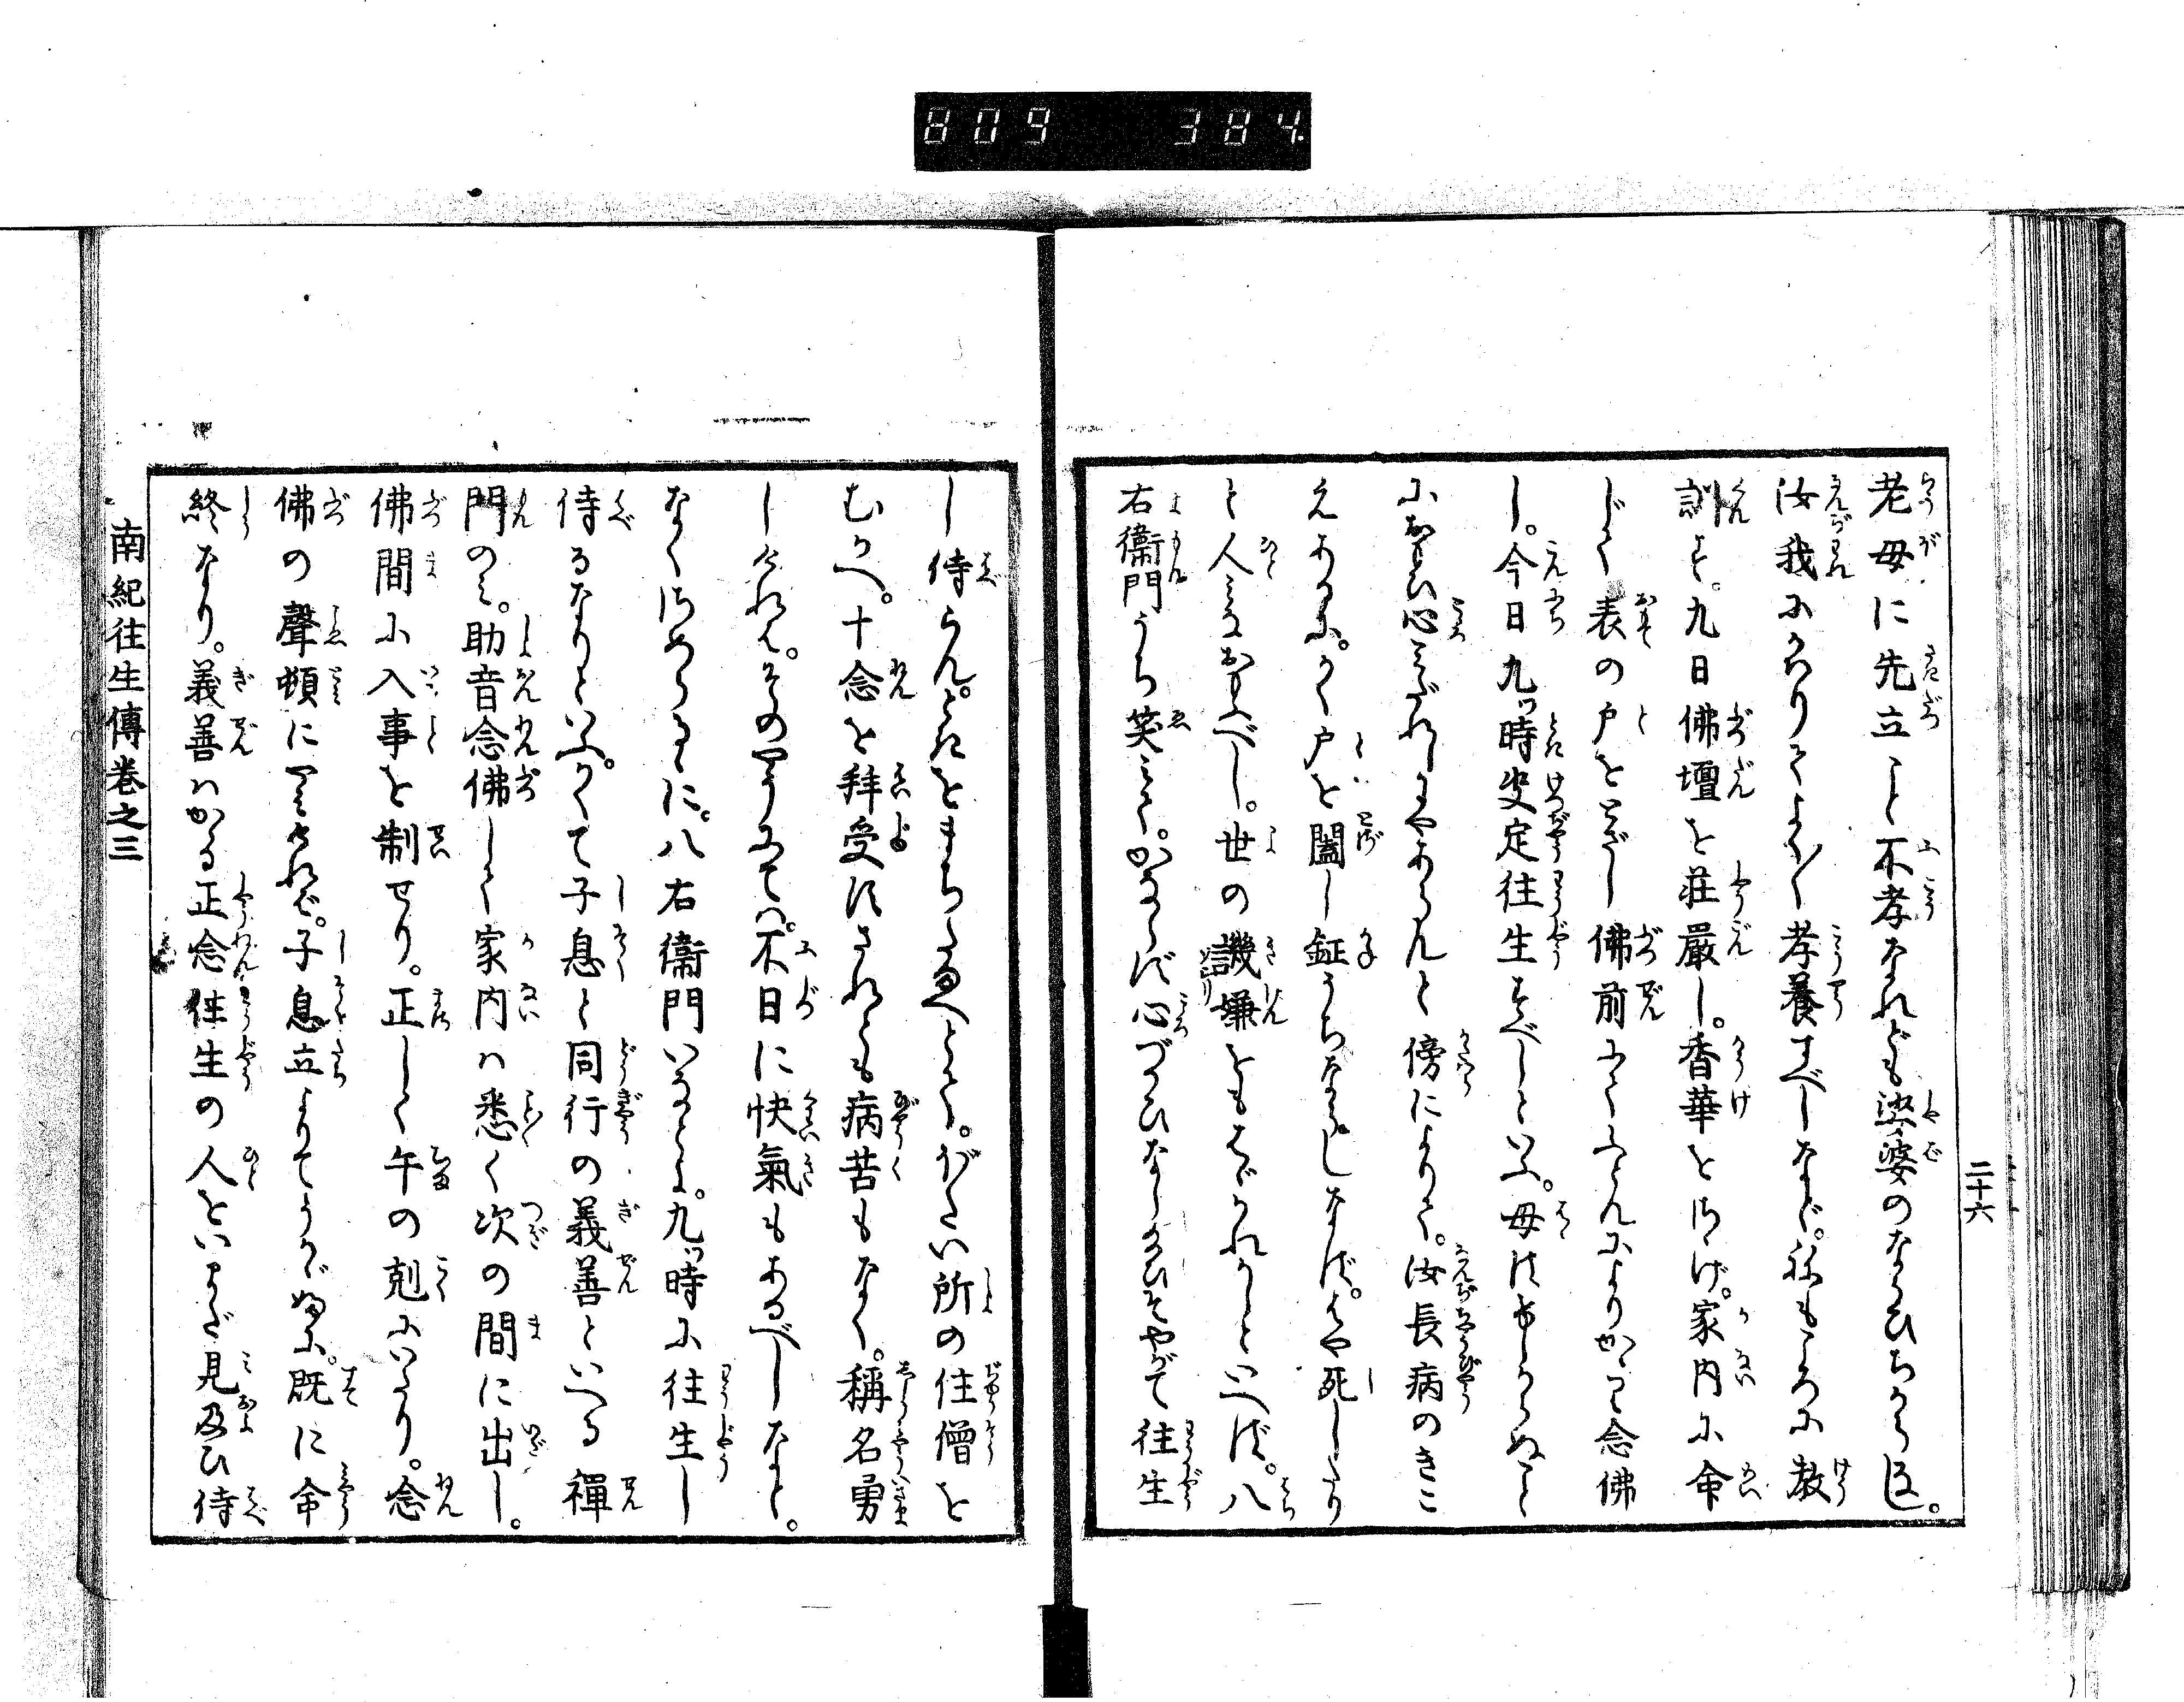 809 384
二十六
老母に先立こと不孝なれども娑婆のならひちからなし。
汝我にかはりてよく〳〵孝養すべしなど。ねもころに教
訓す。九日佛壇を荘嚴し。香華をさゝげ。家内に命
じて表の戸をとざし佛前にてふとんによりかゝり念佛
し。今日九ツ時决定往生すべしといふ。母はけしからぬこと
におもひ心みだれしにやあらんと傍によりて。汝長病のきこ
えあるに。かく戸を闔し鉦うちならしなば。はや死したり
と人みなおもふべし。世の譏嫌をもはゞかれかしといへば。八
右衞門うち笑みて。かならず心づかひなし給ひそやがて往生
し侍らん。ときをまち給へとて。ぼだい所の住僧を
むかへ。十念を拜受すされども病苦もなく。稱名勇
しければ。そのやうにては。不日に快氣もあるべしなと。
なぐさめらるゝに。八右衞門いなとよ。九ツ時に往生し
侍るなりといふ。かくて子息と同行の義善といへる禪
門のみ。助音念佛して家内は悉く次の間に出し。
佛間に入事を制せり。正しく午の剋にいたり。念
佛の聲頓にやみければ。子息立よりてうかゞふに。既に命
終なり。義善はかゝる正念往生の人をいまだ見及ひ侍
南紀往生傳卷之三